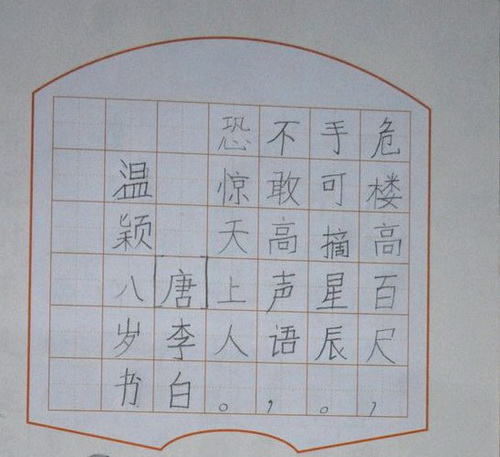 危楼高百尺，
手可摘星辰。
不敢高声语，
恐惊天上人。
[唐]李白
温颖八岁书